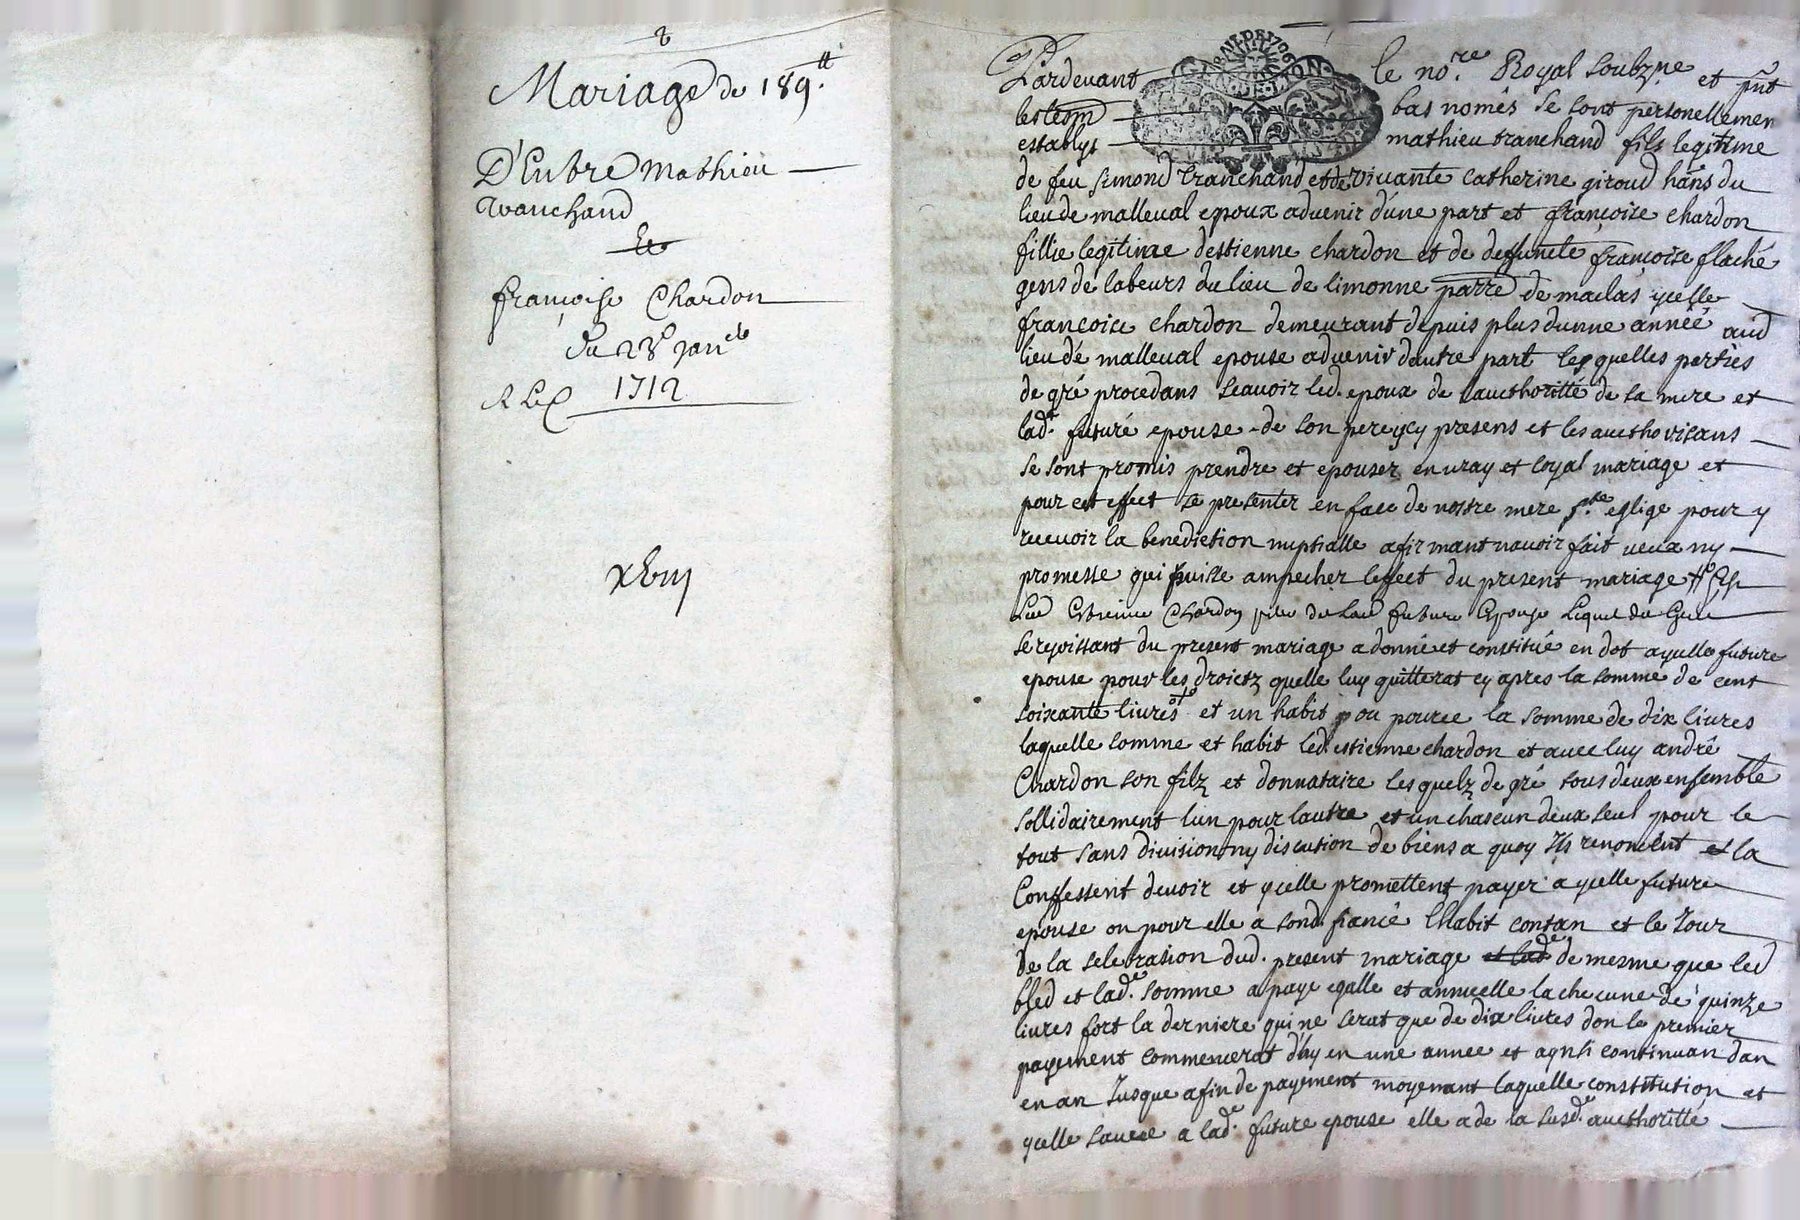 8
Mariage de 189.ᵗᵗ
D'Entre Mathieu
tranchand
Et
françoise Chardon
Du 28ᵉ Janᵉʳ
1712
xbiij
GNALDE 1706
Pardevant le noʳᵉ Royal soubzne et pñt
lestesm bas només se sont personellemen
establys mathieu tranchand fils legitime
de feu simond tranchand et de vivante catherine giroud hans du
lieu de malleval epoux advenir d'une part et françoise chardon
fillie legitime destienne chardon et de deffuncte françoise flaché
gens de labeurs du lieu de limonne parre de maclas ycelle
francoice chardon demeurant depuis plus dunne année aud
lieu de malleval epouse advenir dautre part lesquelles parties
de gré procedans scavoir led. epoux de lauthoritté de sa mere et
ladᵗ. futuré epouse de son pere ycy presens et les aucthorisans
se sont promis prendre et epouser en vray et loyal mariage et
pour cet effect se presenter en face de nostre mere sᵗᵉ eglige pour y
recevoir la benediction nuptialle afirmant navoir fait veux ny
promesse qui puisse ampecher leffect du present mariage
Led Estienne Chardon pere de lad future Epouse Lequel de Gré
se rejoissant du present mariage a donné et constitué en dot aycelle future
epouse pour les droictz quelle luy quitterat cy apres la somme de cent
soixante livres et un habit ou pource la somme de dix livres
laquelle somme et habit led. estienne chardon et avec luy andré
Chardon son filz et donnataire lesquelz de gré tous deux ensemble
sollidairement lun pour lautre et un chascun deux seul pour le
tout sans division ny discution de biens a quoy Ils renoncent et la
Confessent devoir et ycelle promettent payer a ycelle future
epouse ou pour elle a sond. fiancé lhabit contan et le Jour
de la selebration dud. present mariage et ladᵉ de mesme que led
bled et ladᵉ. somme a paye egalle et annuelle la checune de quinze
livres fort la derniere qui ne serat que de dix livres don le premier
payement commencerat d'huy en une annee et aynsi continuan dan
en an Jusque a fin de payment moyenant laquelle constitution et
ycelle sauve a ladᵉ. future epouse elle a de la susdᵉ. aucthoritté